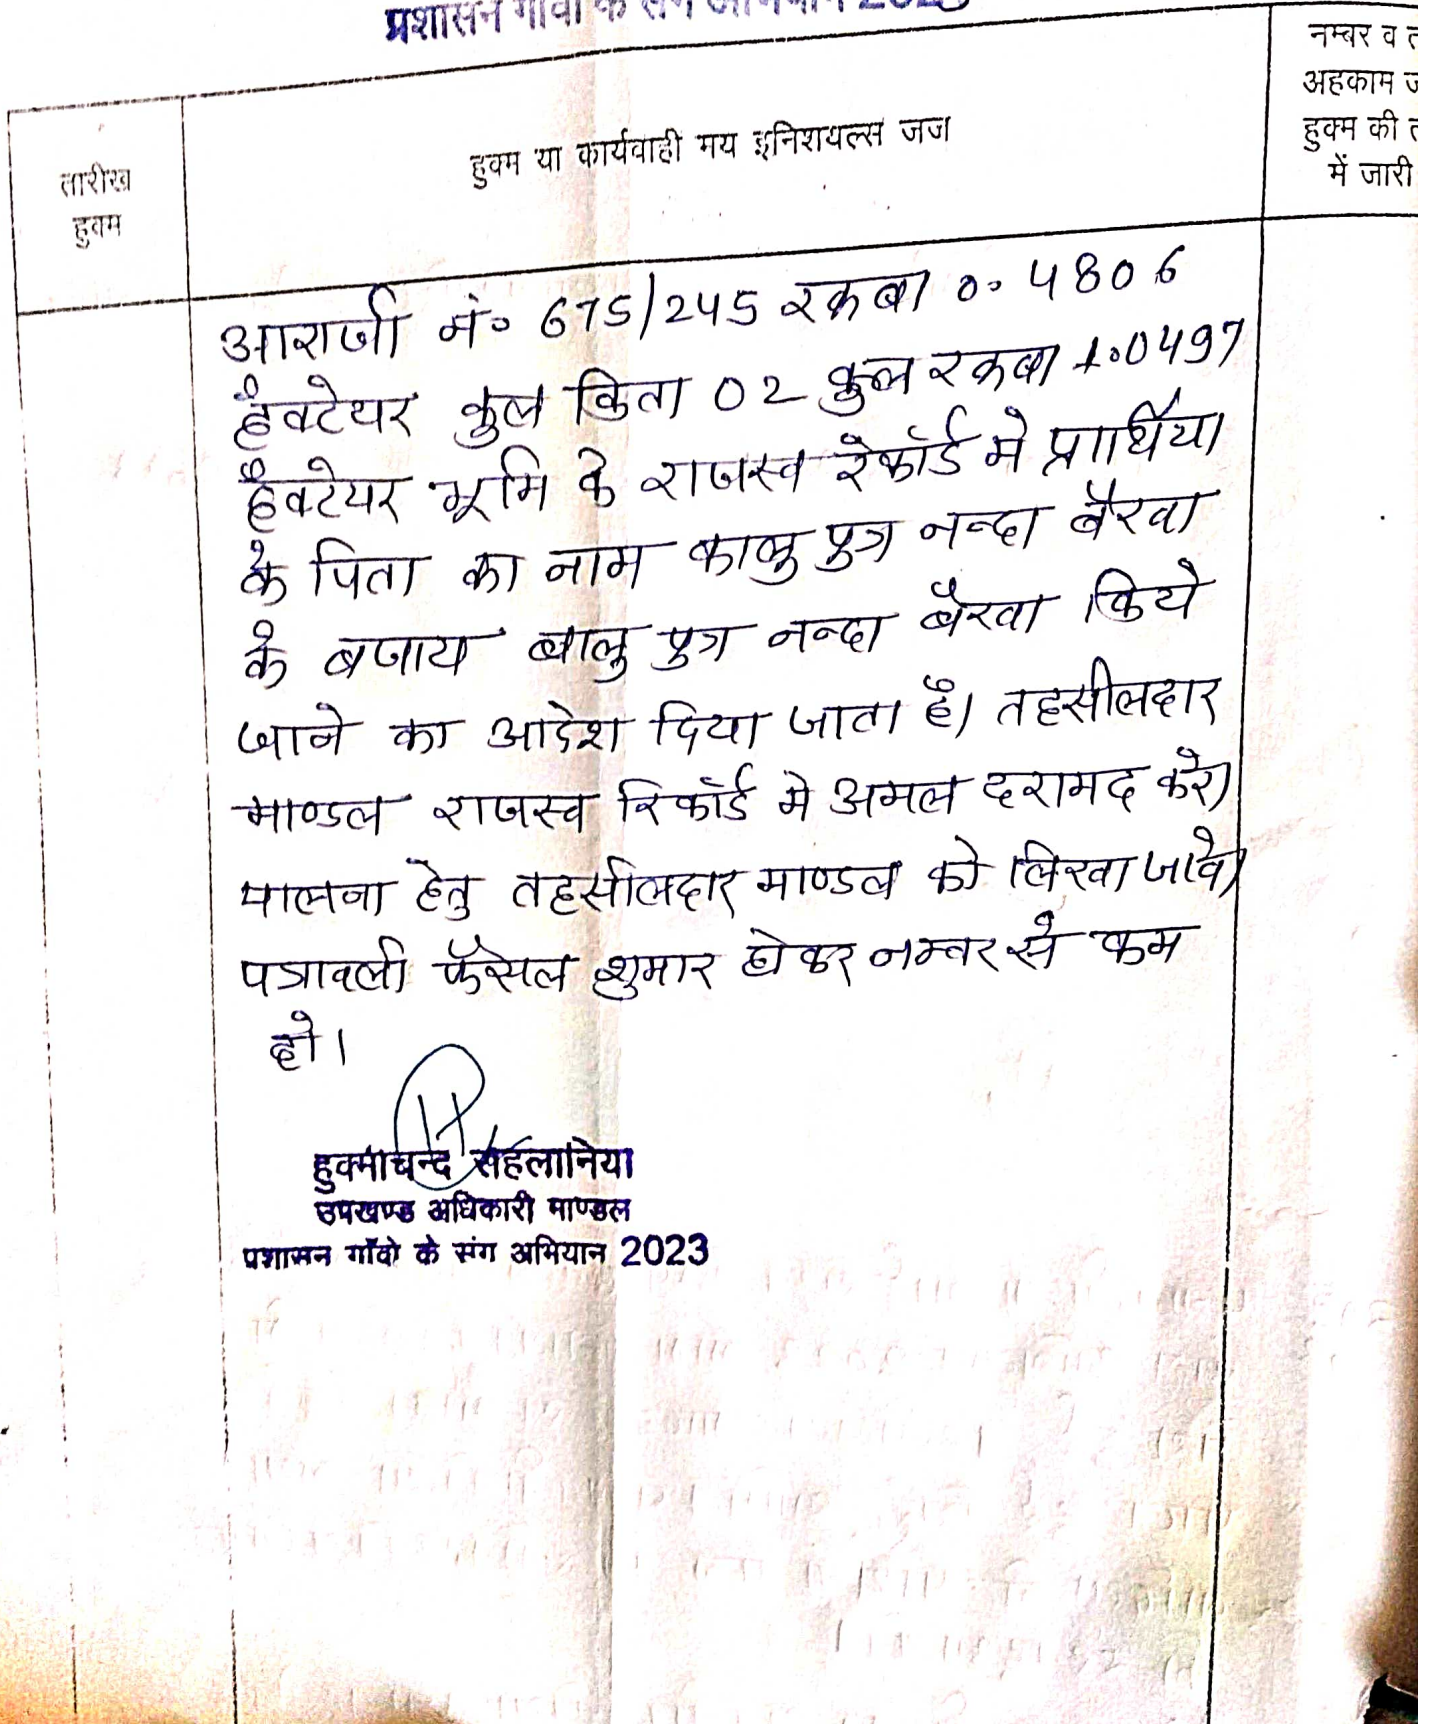 प्रशासन गांवों के संग अभियान 2023
नम्बर व
अहकाम
हुक्म की
में जारी
हुक्म या कार्यवाही मय इनिशयल्स जज
तारीख
हुक्म
आराजी नं० 675/245 रकबा 0.4806
हैक्टेयर कुल किता 02 कुल रकबा 1.0497
हैक्टेयर भूमि के राजस्व रेकॉर्ड मे प्रार्थिया
के पिता का नाम कालु पुत्र नन्दा बैरवा
के बजाय बालु पुत्र नन्दा बैरवा किये
जाने का आदेश दिया जाता है। तहसीलदार
माण्डल राजस्व रिकॉर्ड मे अमल दरामद करे।
पालना हेतु तहसीलदार माण्डल को लिखा जावे।
पत्रावली फैसल शुमार होकर नम्बर से कम
हो।
हुक्मीचन्द रोहलानिया
उपखण्ड अधिकारी माण्डल
प्रशासन गाँवो के संग अभियान 2023